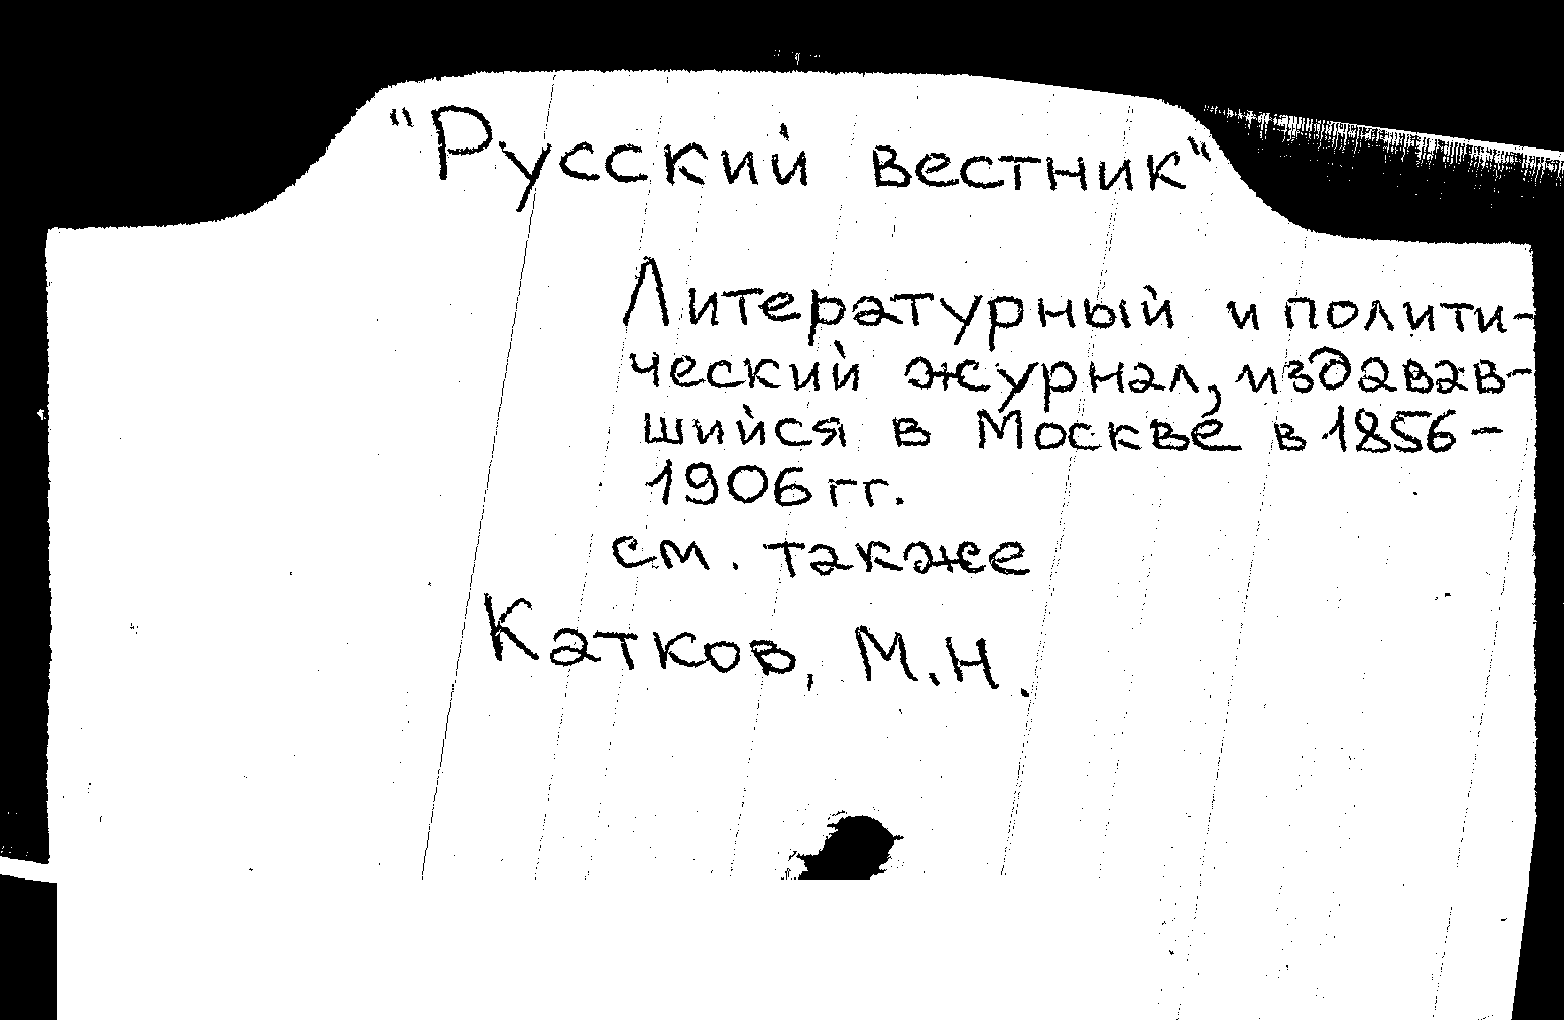 "Русский вестник"
Литературный и полити-
ческий журнал, издавав-
шийся в Москве в 1856-
1906 гг.
см. также
Катков, М.Н.